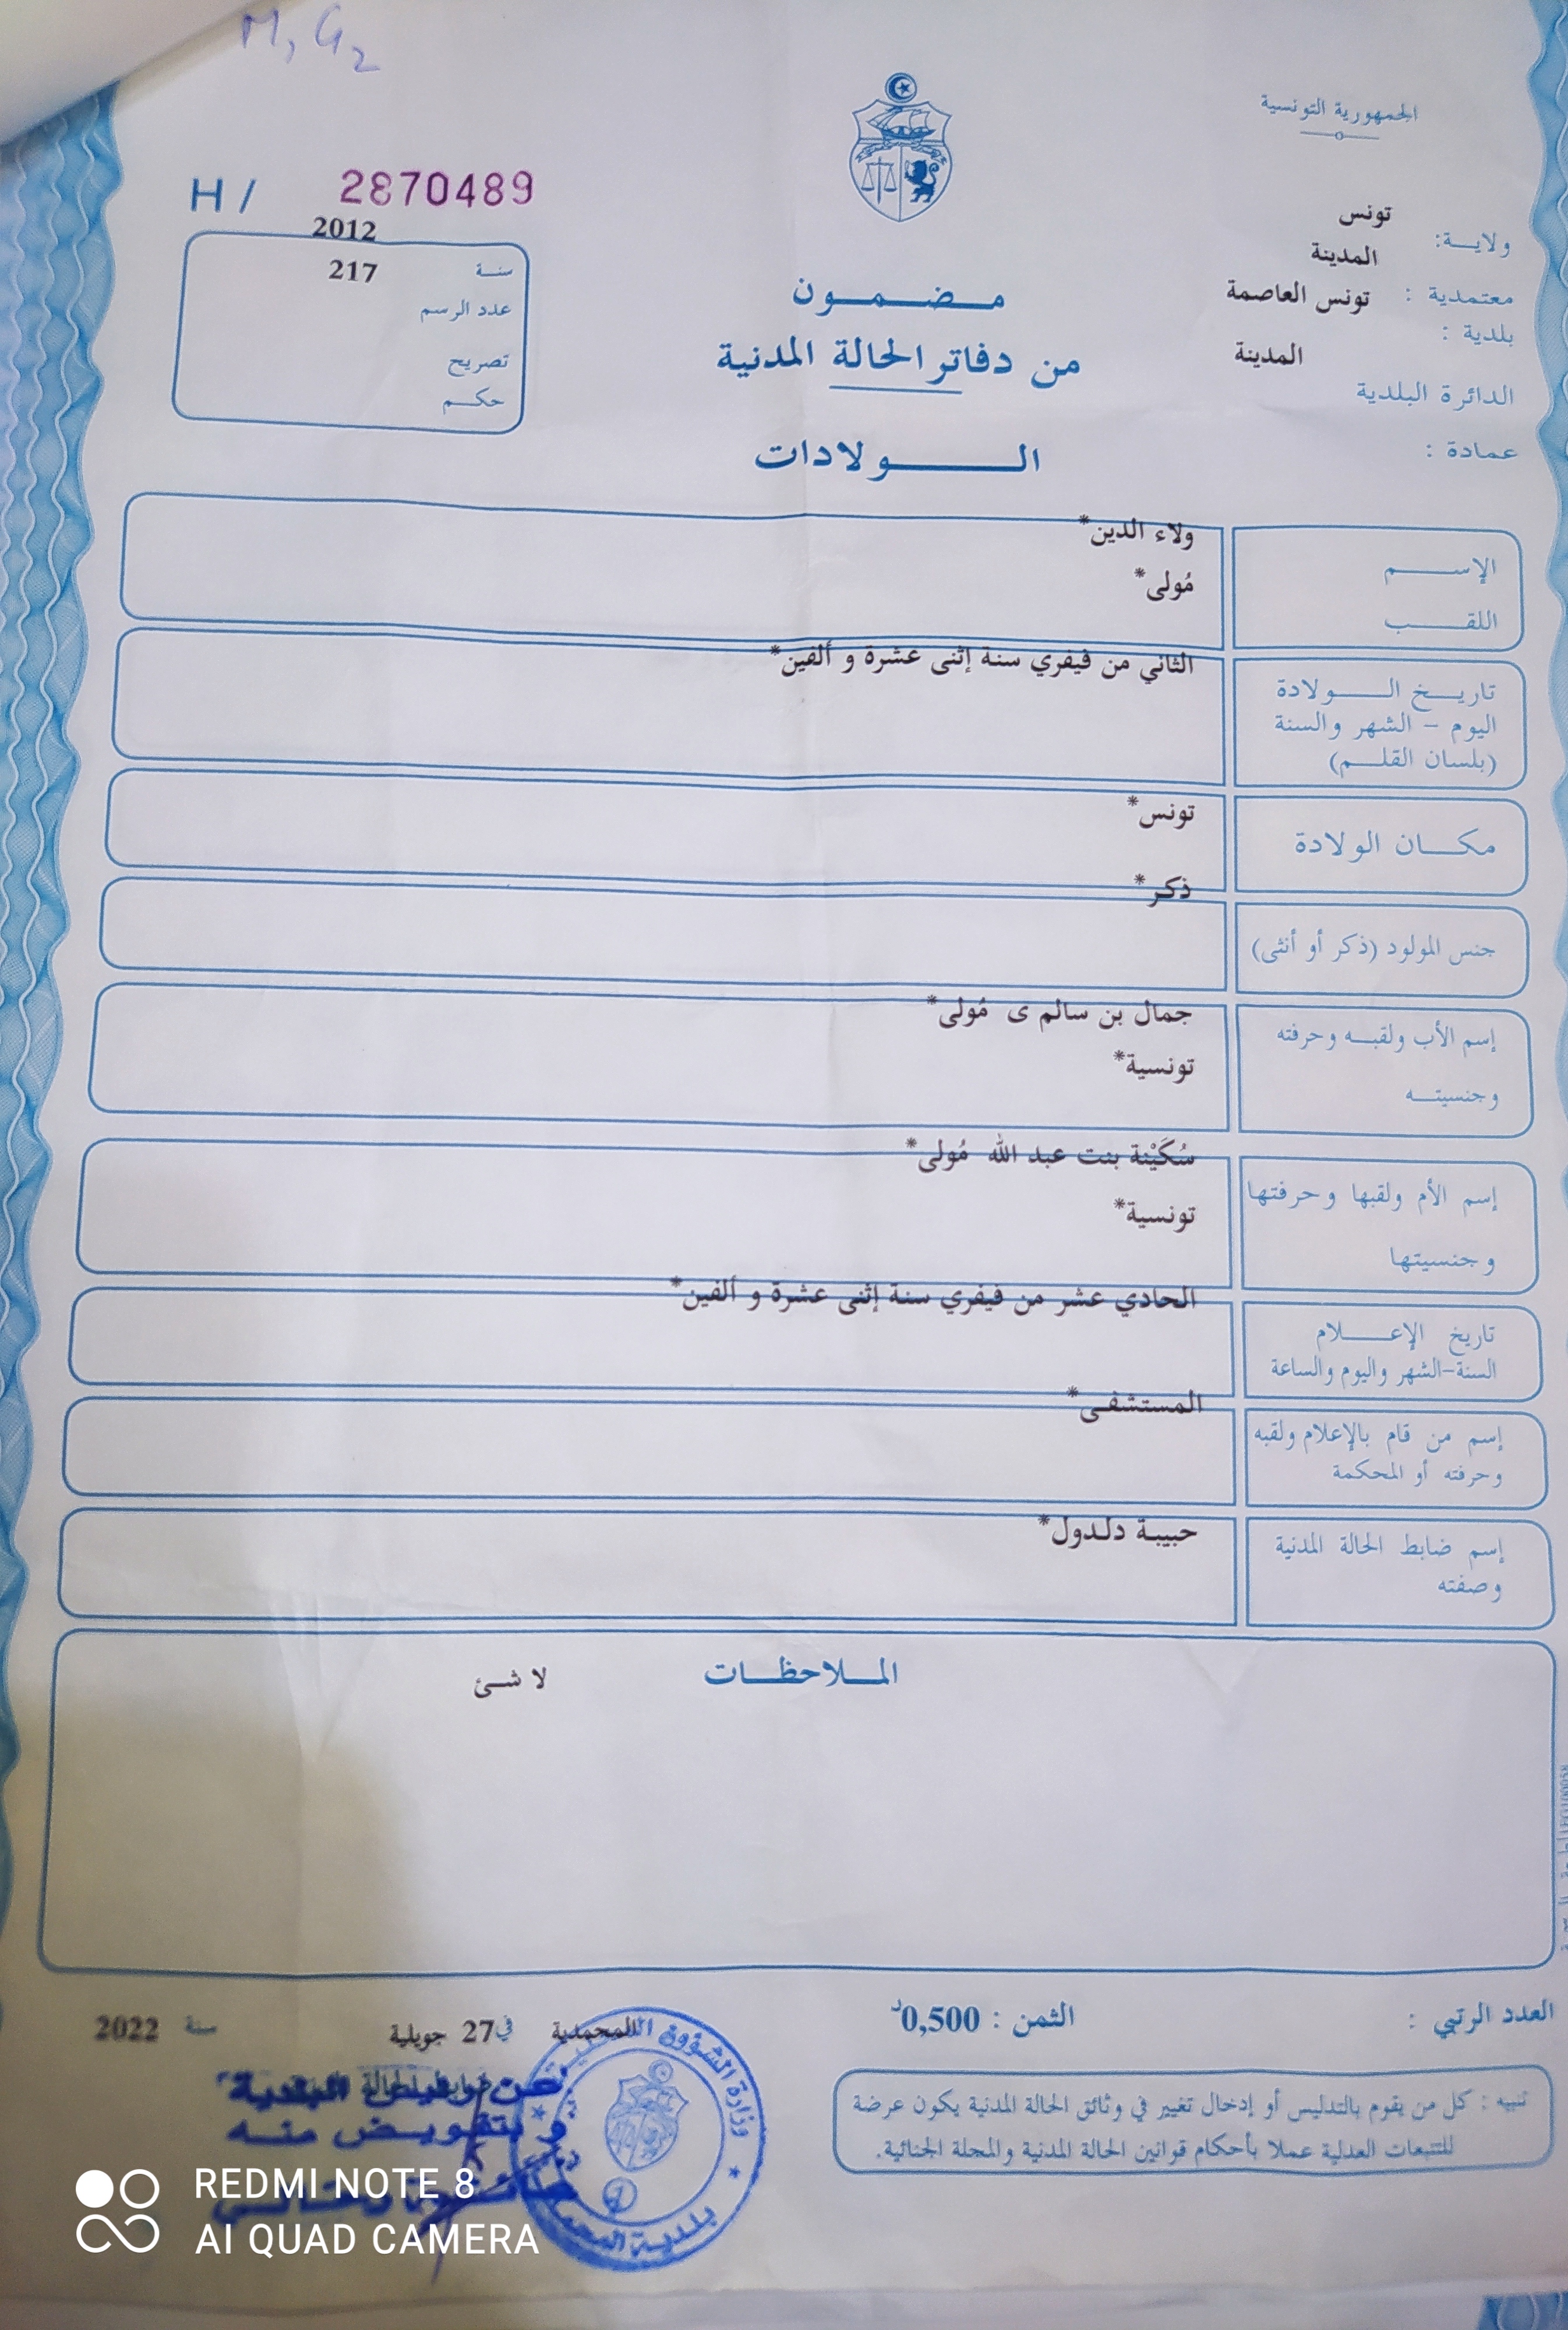 M, G2
الجمهورية التونسية
H / 2870489
ولاية: تونس
معتمدية : المدينة
بلدية : تونس العاصمة
الدائرة البلدية المدينة
عمادة :
سنة 2012
عدد الرسم 217
تصريح
حكم
مضمون
من دفاتر الحالة المدنية
الولادات
الإسم ولاء الدين*
اللقب مُولى*
تاريخ الولادة الثاني من فيفري سنة إثنى عشرة و ألفين*
اليوم - الشهر والسنة
(بلسان القلم)
مكان الولادة تونس*
جنس المولود (ذكر أو أنثى) ذكر*
إسم الأب ولقبه وحرفته جمال بن سالم ى مُولى*
وجنسيته تونسية*
إسم الأم ولقبها وحرفتها سُكَيْنة بنت عبد الله مُولى*
وجنسيتها تونسية*
تاريخ الإعلام الحادي عشر من فيفري سنة إثنى عشرة و ألفين*
السنة-الشهر واليوم والساعة
إسم من قام بالإعلام ولقبه المستشفى*
وحرفته أو المحكمة
إسم ضابط الحالة المدنية حبيبة دلدول*
وصفته
الملاحظات لا شئ
العدد الرتبي : الثمن : 0,500د
المحمدية في 27 جويلية سنة 2022
تنبيه : كل من يقوم بالتدليس أو إدخال تغيير في وثائق الحالة المدنية يكون عرضة
للتتبعات العدلية عملا بأحكام قوانين الحالة المدنية والمجلة الجنائية.
عن رئيس البلدية
و بتفويض منه
وزارة الشؤون المحلية
بلدية
REDMI NOTE 8
AI QUAD CAMERA